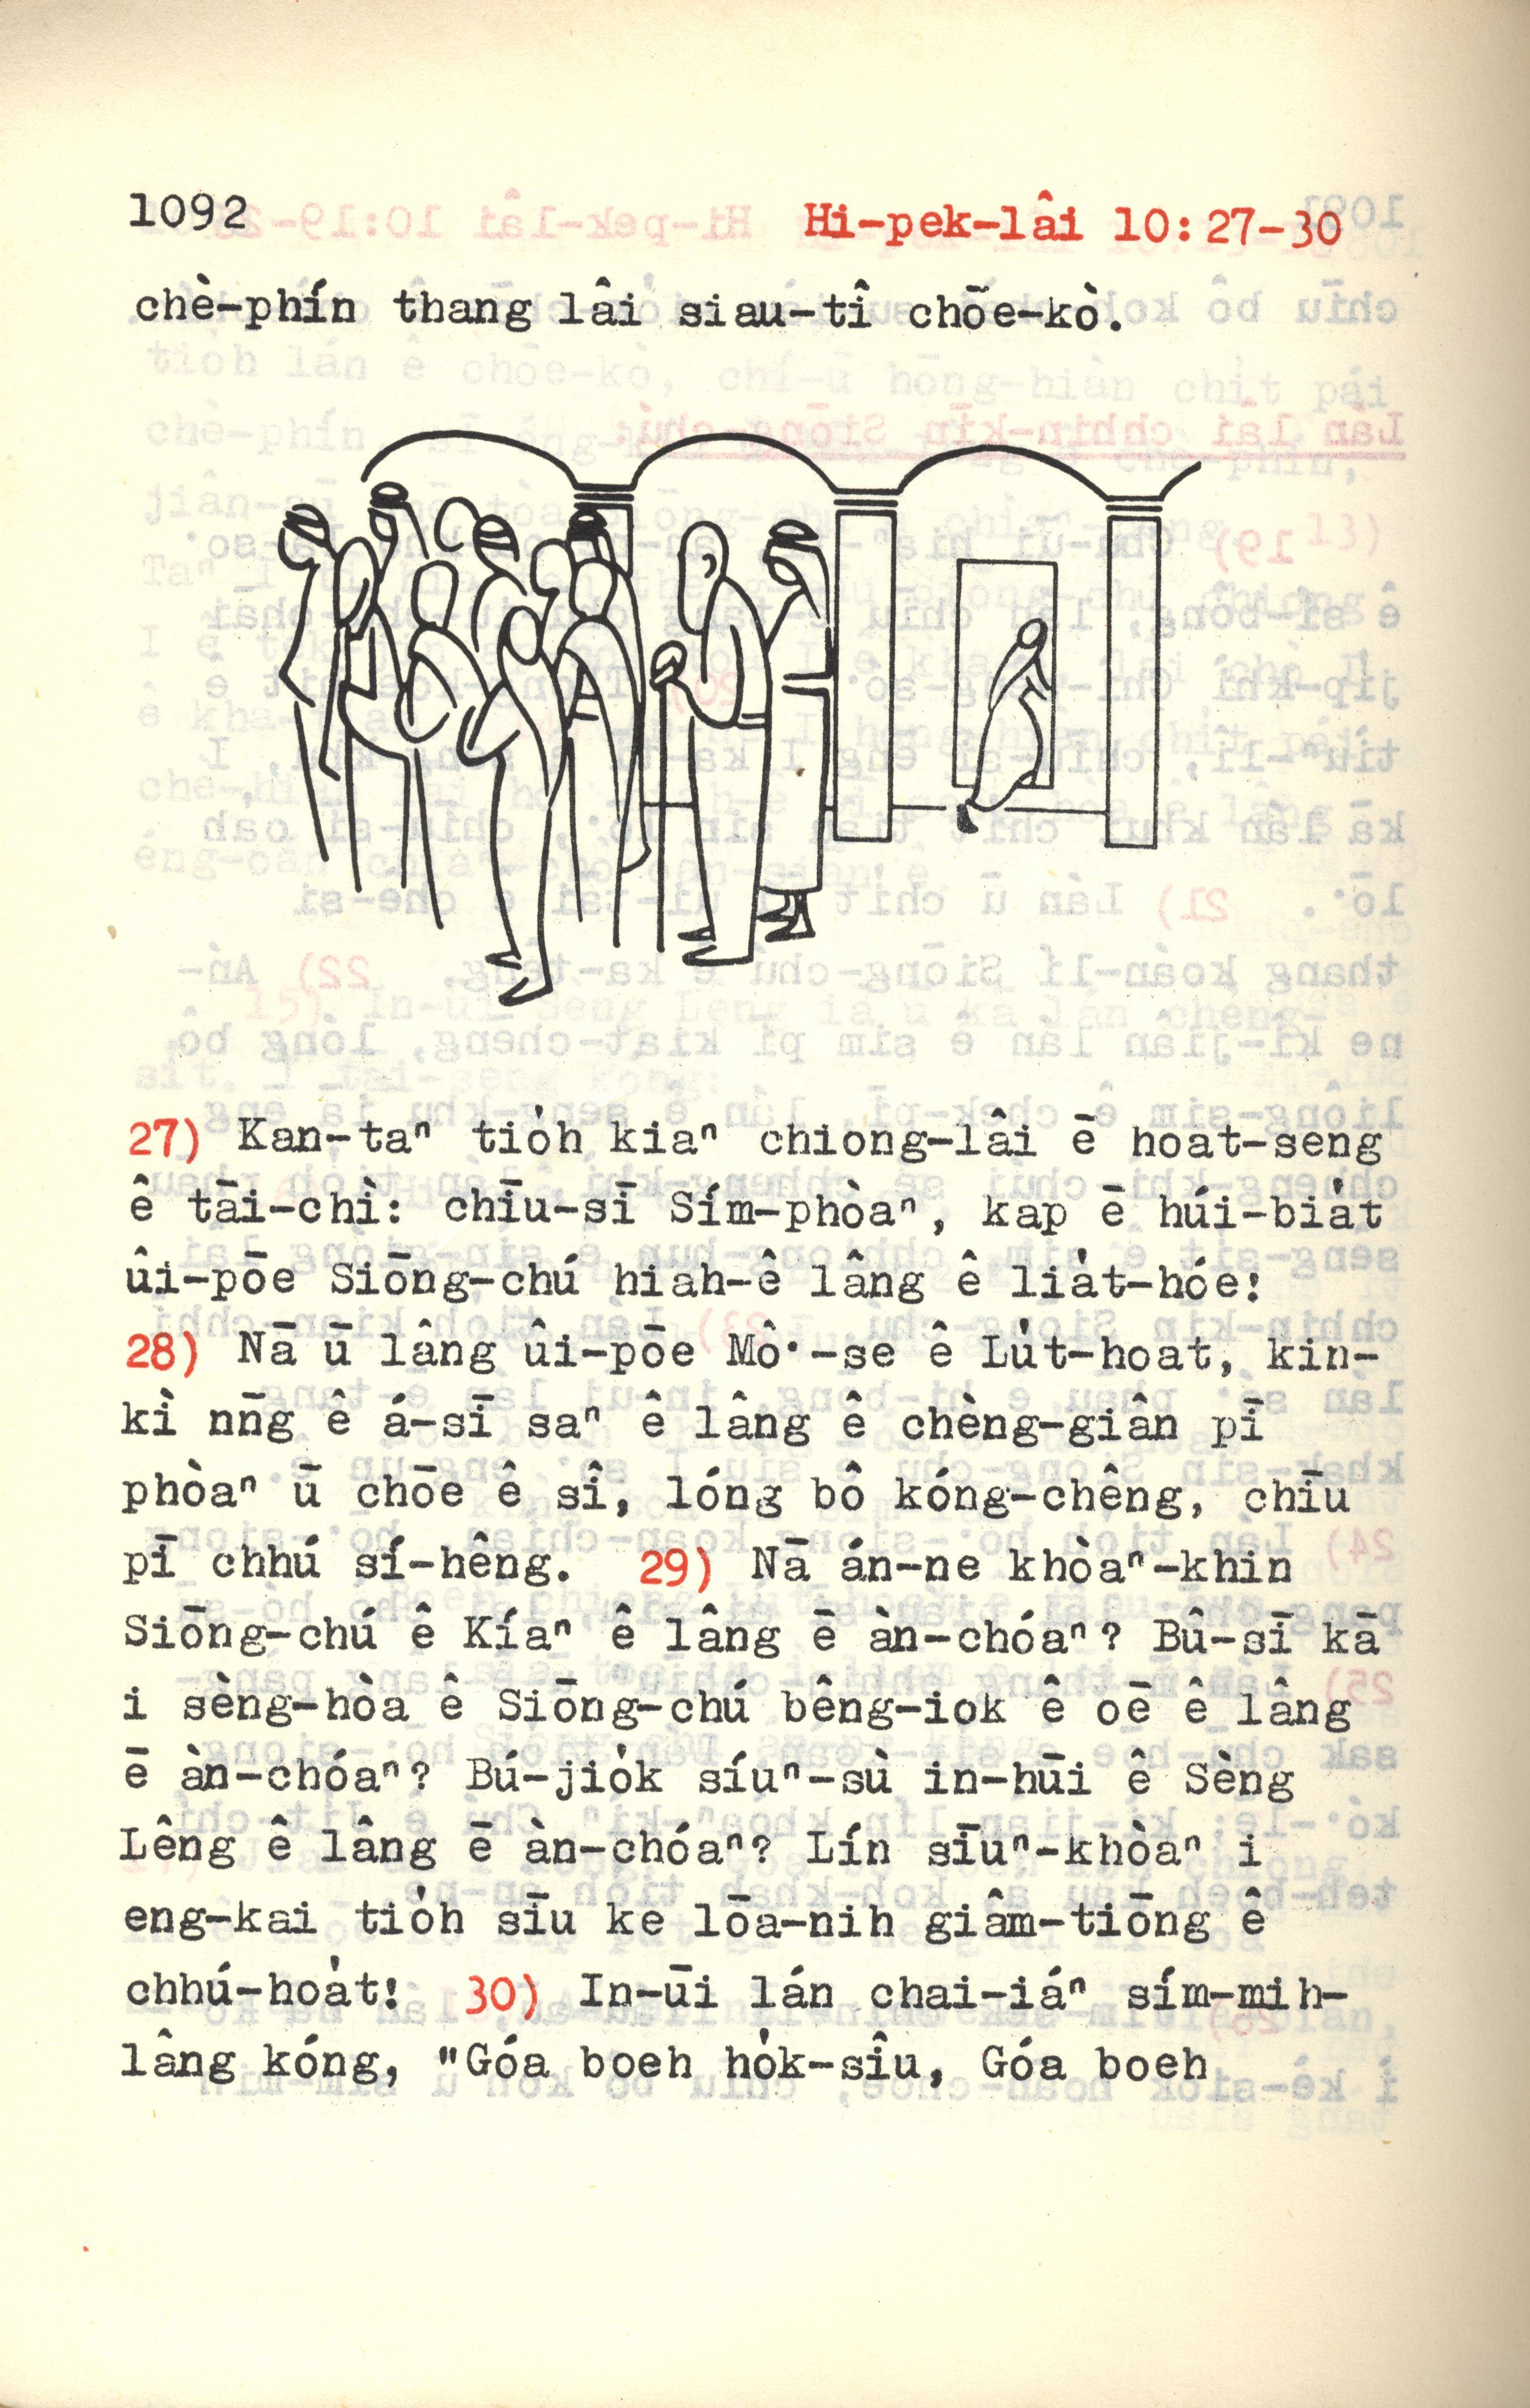 1092 Hi-pek-lâi 10:27-30
chè-phín thang lâi siau-tî chōe-kò.
27) Kan-taⁿ tio̍h kiaⁿ chiong-lâi ē hoat-seng
ê tāi-chì: chīu-sī Sím-phòaⁿ, kap ē húi-bia̍t
ûi-pōe Siōng-chú hiah-ê lâng ê lia̍t-hóe!
28) Nā ū lâng ûi-pōe Mô͘-se ê Lu̍t-hoat, kin-
kì nn̄g ê á-sī saⁿ ê lâng ê chèng-giân pī
phòaⁿ ū chōe ê sî, lóng bô kóng-chêng, chīu
pī chhú sí-hêng. 29) Nā án-ne khòaⁿ-khin
Siōng-chú ê Kíaⁿ ê lâng ē àn-chóaⁿ? Bû-sī kā
i sèng-hòa ê Siōng-chú bêng-iok ê oē ê lâng
ē àn-chóaⁿ? Bú-jio̍k síuⁿ-sù in-hūi ê Sèng
Lêng ê lâng ē àn-chóaⁿ? Lín sīuⁿ-khòaⁿ i
eng-kai tio̍h sīu ke lōa-nih giâm-tiōng ê
chhú-hoa̍t! 30) In-ūi lán chai-iáⁿ sím-mih-
lâng kóng, "Góa boeh ho̍k-sîu, Góa boeh